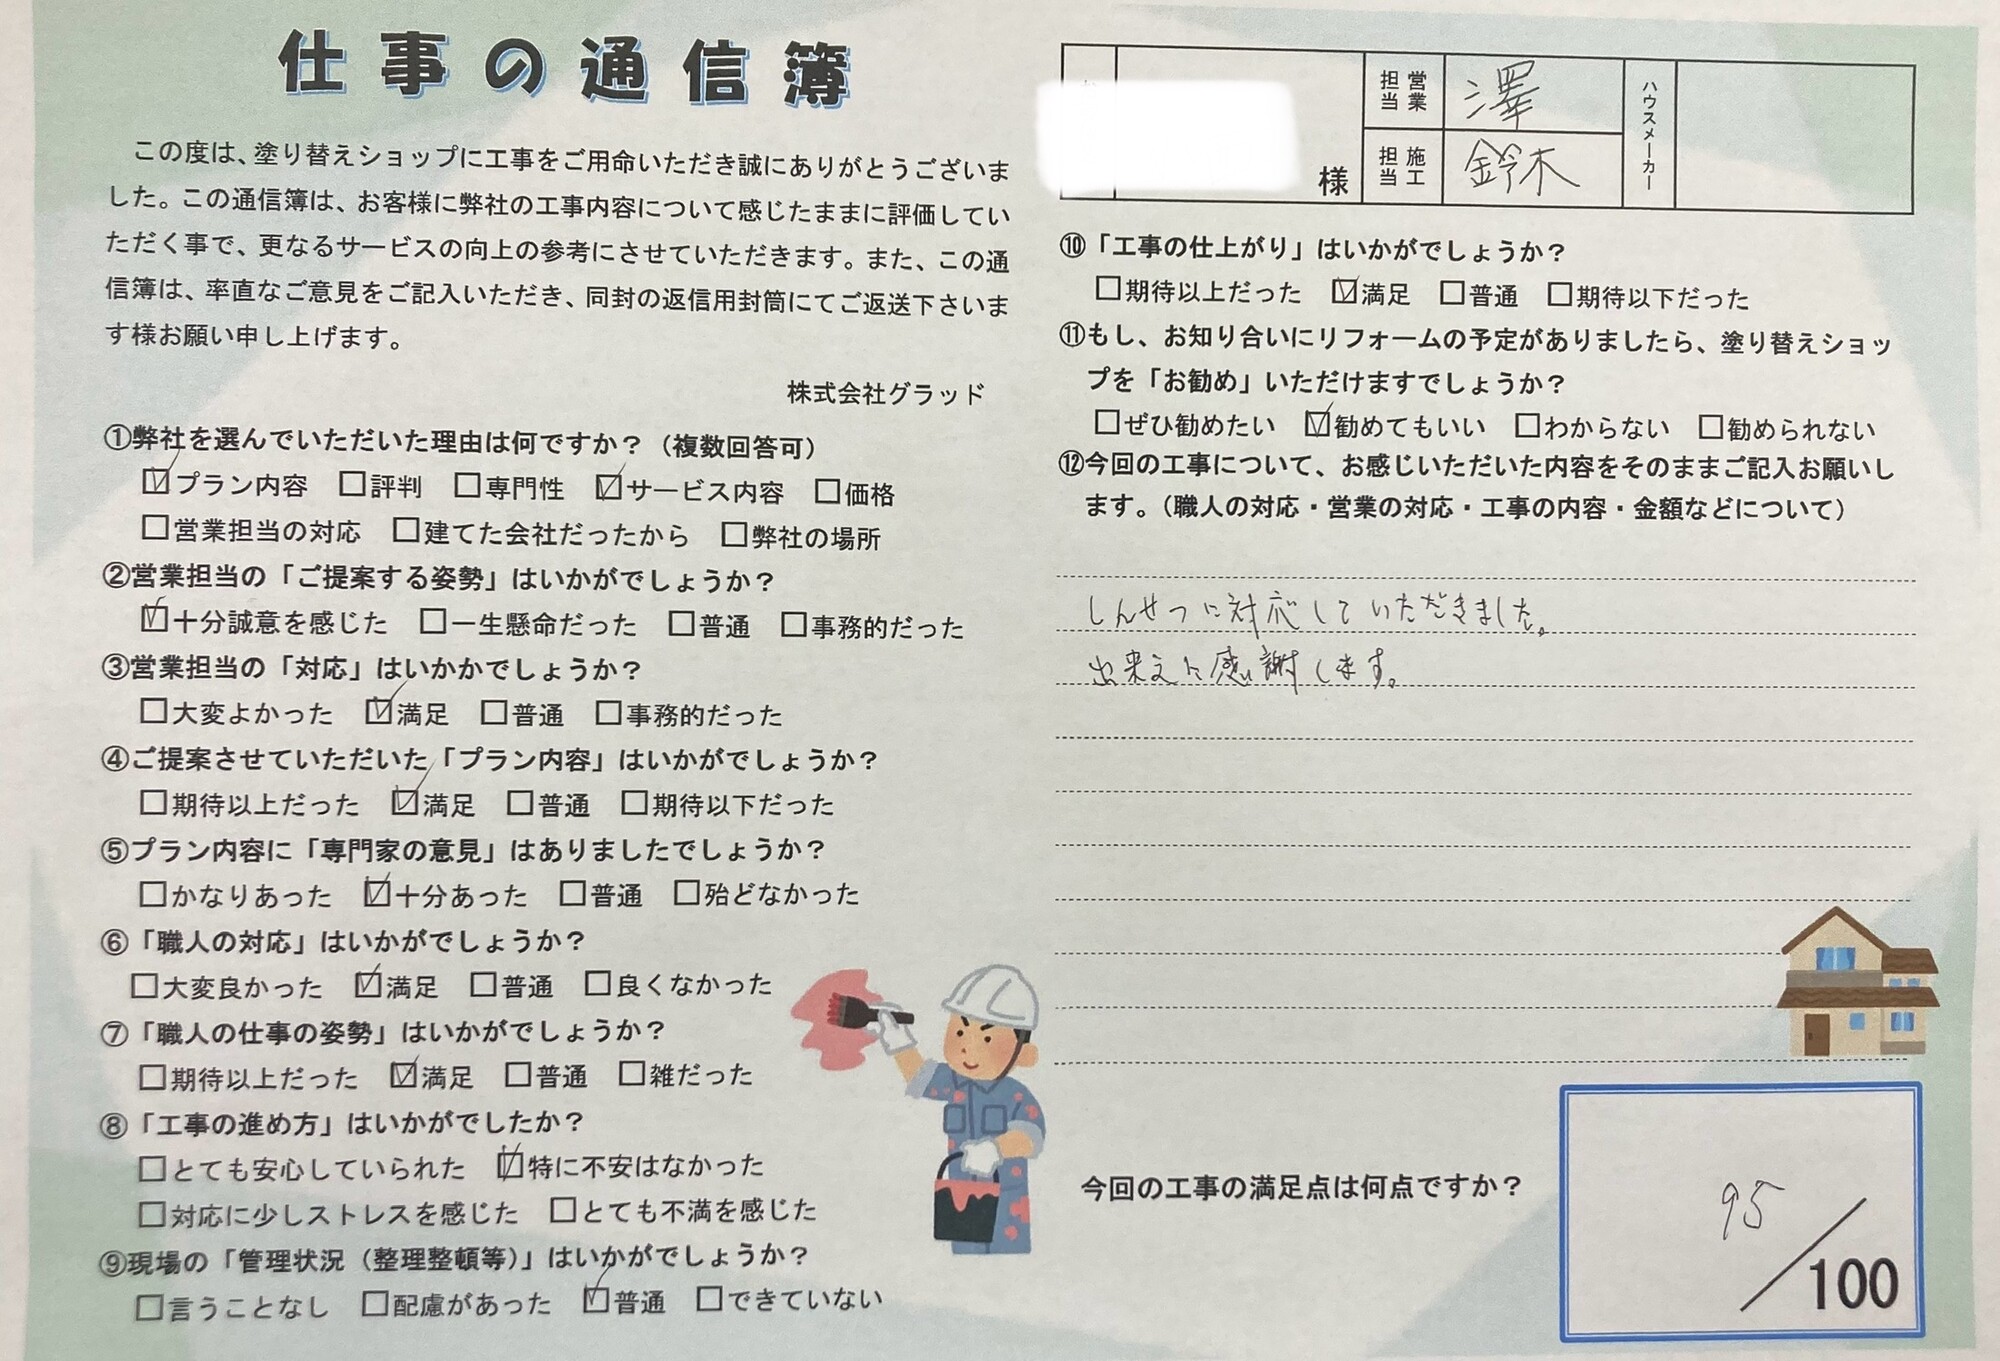 仕事の通信簿
この度は、塗り替えショップに工事をご用命いただき誠にありがとうございま
した。この通信簿は、お客様に弊社の工事内容について感じたままに評価してい
ただく事で、更なるサービスの向上の参考にさせていただきます。また、この通
信簿は、率直なご意見をご記入いただき、同封の返信用封筒にてご返送下さいま
す様お願い申し上げます。
株式会社グラッド
①弊社を選んでいただいた理由は何ですか？（複数回答可）
☑プラン内容 □評判 □専門性 ☑サービス内容 □価格
□営業担当の対応 □建てた会社だったから □弊社の場所
②営業担当の「ご提案する姿勢」はいかがでしょうか？
☑十分誠意を感じた □一生懸命だった □普通 □事務的だった
③営業担当の「対応」はいかかでしょうか？
□大変よかった ☑満足 □普通 □事務的だった
④ご提案させていただいた「プラン内容」はいかがでしょうか？
□期待以上だった ☑満足 □普通 □期待以下だった
⑤プラン内容に「専門家の意見」はありましたでしょうか？
□かなりあった ☑十分あった □普通 □殆どなかった
⑥「職人の対応」はいかがでしょうか？
□大変良かった ☑満足 □普通 □良くなかった
⑦「職人の仕事の姿勢」はいかがでしょうか？
□期待以上だった ☑満足 □普通 □雑だった
⑧「工事の進め方」はいかがでしたか？
□とても安心していられた ☑特に不安はなかった
□対応に少しストレスを感じた □とても不満を感じた
⑨現場の「管理状況（整理整頓等）」はいかがでしょうか？
□言うことなし □配慮があった ☑普通 □できていない
様
営業担当 澤
施工担当 鈴木
ハウスメーカー
⑩「工事の仕上がり」はいかがでしょうか？
□期待以上だった ☑満足 □普通 □期待以下だった
⑪もし、お知り合いにリフォームの予定がありましたら、塗り替えショッ
プを「お勧め」いただけますでしょうか？
□ぜひ勧めたい ☑勧めてもいい □わからない □勧められない
⑫今回の工事について、お感じいただいた内容をそのままご記入お願いし
ます。（職人の対応・営業の対応・工事の内容・金額などについて）
しんせつに対応していただきました。
出来えに感謝します。
今回の工事の満足点は何点ですか？
95/100